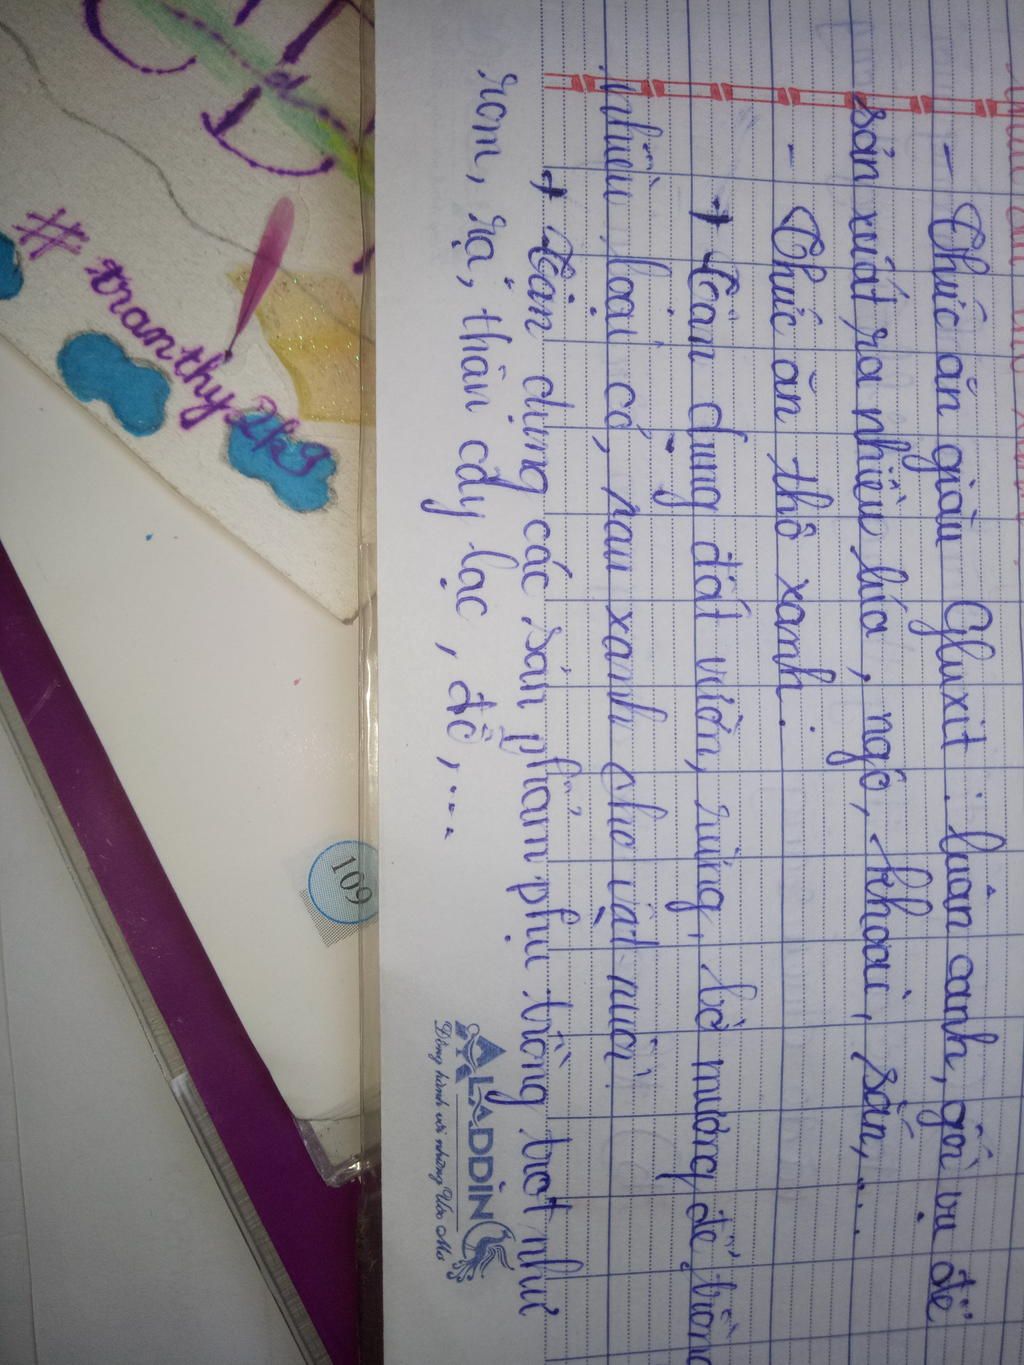 - Thức ăn giàu Gluxit: luân canh, gối vụ để
sản xuất ra nhiều lúa, ngô, khoai, sắn,...
- Thức ăn thô xanh:
+ Tận dụng đất vườn, rừng, bờ mương để trồng
nhiều loại cỏ, rau xanh cho vật nuôi.
+ Tận dụng các sản phẩm phụ trồng trọt như
rơm, rạ, thân cây lạc, đỗ,...
ALADDIN
Đồng hành với những Ước Mơ
109
#tranthy2k9